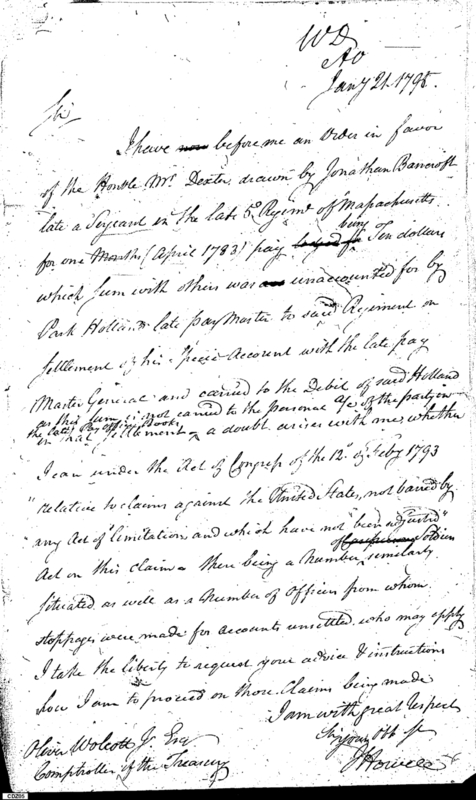 WD
AO
Jany 21. 1795.
Sir
I have now before me an Order in favor
of the Honble Mr. Dexter, drawn by Jonathan Bancroft
late a Serjeant in the late 5th Regimt of Massachusetts
for one Months (April 1783) pay being Ten dollars
which sum with others was unaccounted for by
Park Holland late pay Master to said Regiment on
settlement of his Specie Account with the late pay
Master General and carried to the Debit of said Holland
as this sum is not carried to the personal a/c of the party in
the late pay Office Books
in that settlement a doubt arises with me, whether
I can under the Act of Congress of the 12th of Feby 1793
"relative to claims against the United States, not barred by
"any Act of limitation and which have not been adjusted"
Act on this claim & there being a number of Soldiers similarly
situated as well as a Number of Officers from whom
stoppages were made for accounts unsettled who may apply
I take the liberty to request your advice & instructions
how I am to proceed on those Claims being made
I am with great respect
Sir your Obt St
J Howell
Oliver Wolcott Jr Esq
Comptroller of the Treasury
CD266